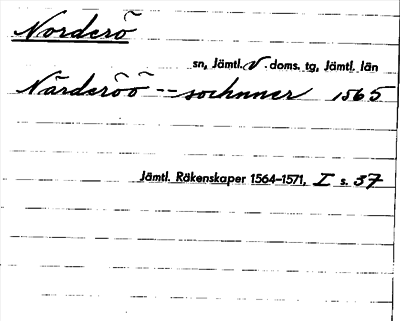 Norderö
sn, Jämtl. v. doms. tg, Jämtl. län
Närderöö -- sochnner 1565
Jämtl. Räkenskaper 1564-1571, I s. 37